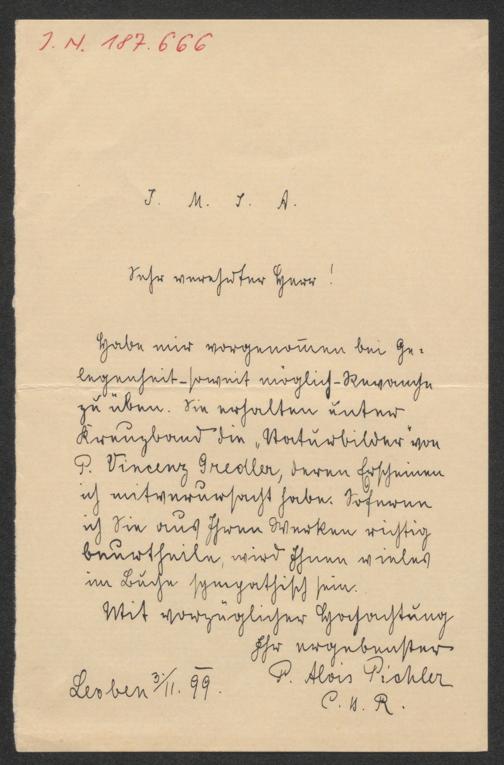 J. N. 187.666
J. M. J. A.
Sehr verehrter Herr!
Habe mir vorgenom̄en bei Ge-
legenheit – soweit möglich – Revanche
zu üben. Sie erhalten unter
Kreuzband die „Naturbilder" von
P. Vincenz Gredler, deren Erscheinen
ich mitverursacht habe. Soferne
ich Sie aus Ihren Werken richtig
beurtheile, wird Ihnen vieles
im Buche sympathisch sein.
Mit vorzüglicher Hochachtung
Ihr ergebenster
P. Alois Pichler
Leoben 3./II. 99.
C. ss. R.